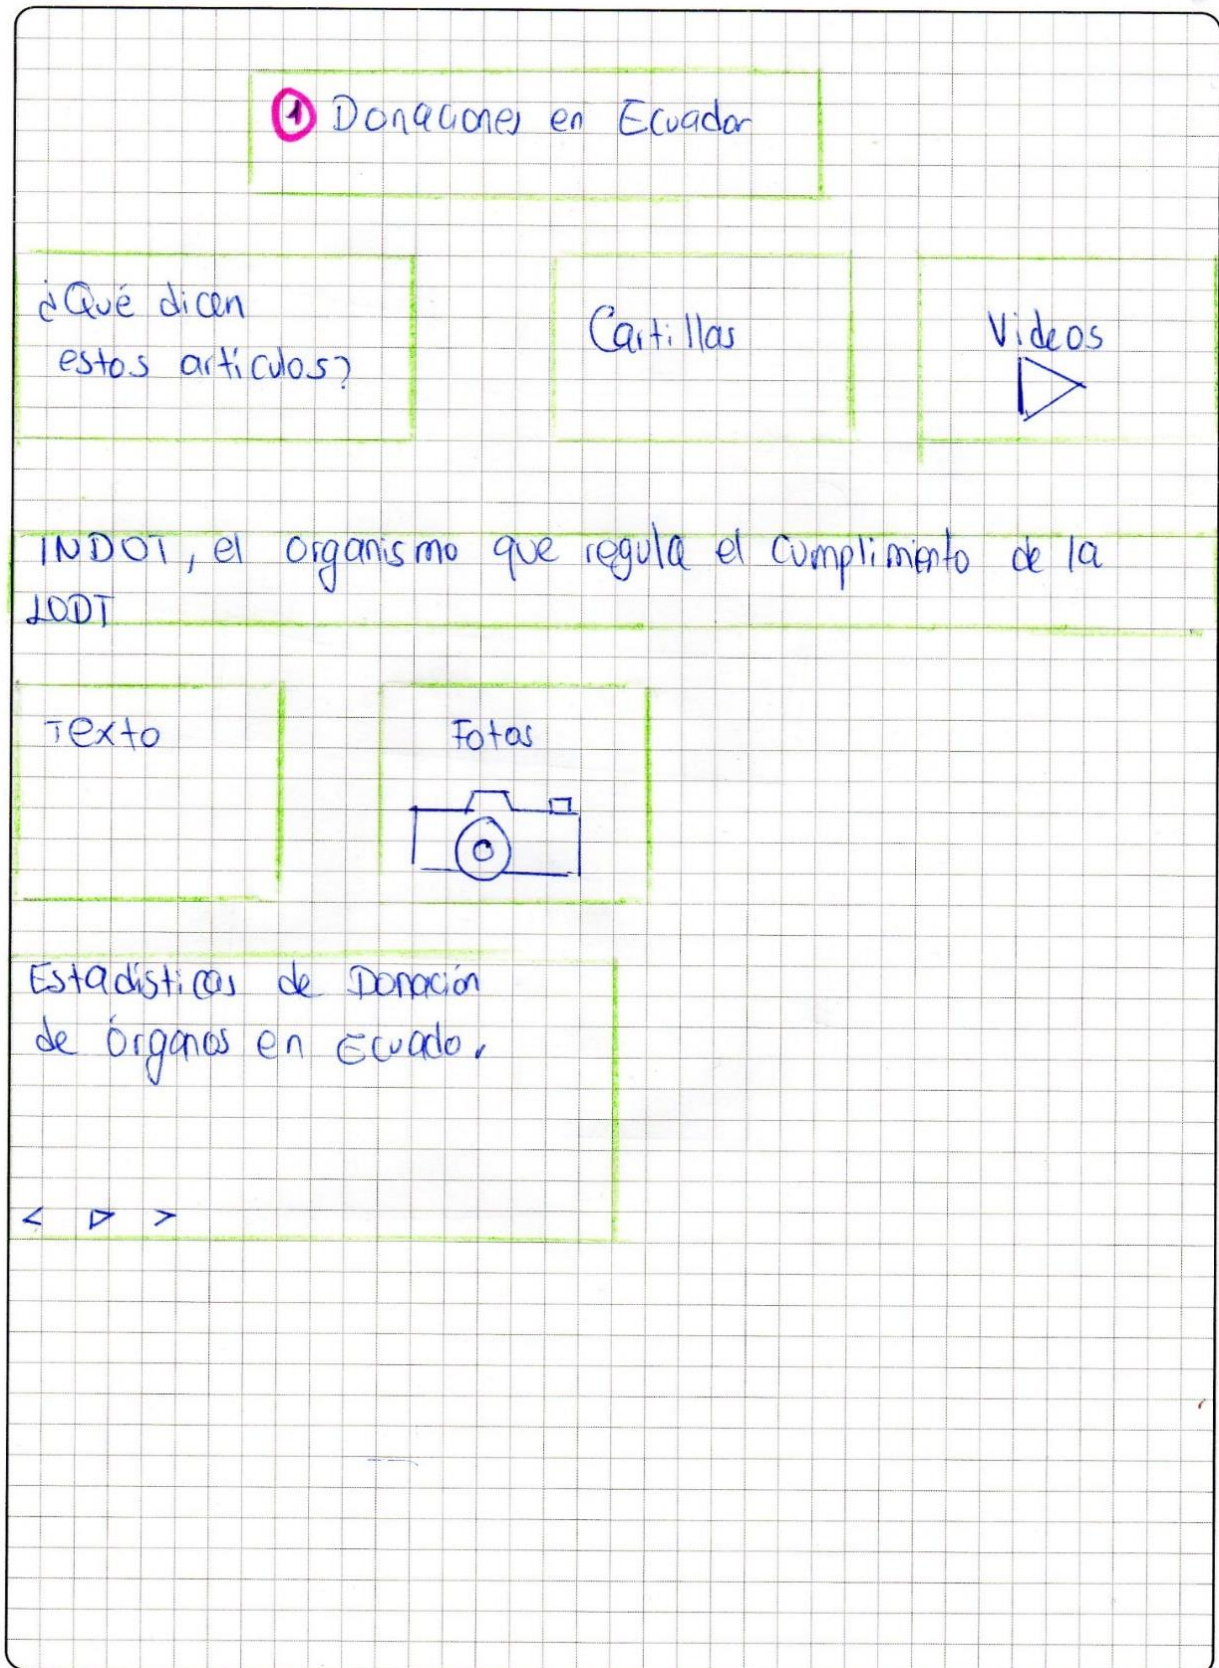 1 Donaciones en Ecuador
¿Qué dicen
estos artículos?
Cartillas
Videos
INDOT, el organismo que regula el cumplimiento de la
LODT
Texto
Fotos
Estadísticas de Donación
de órganos en Ecuador
< ▷ >